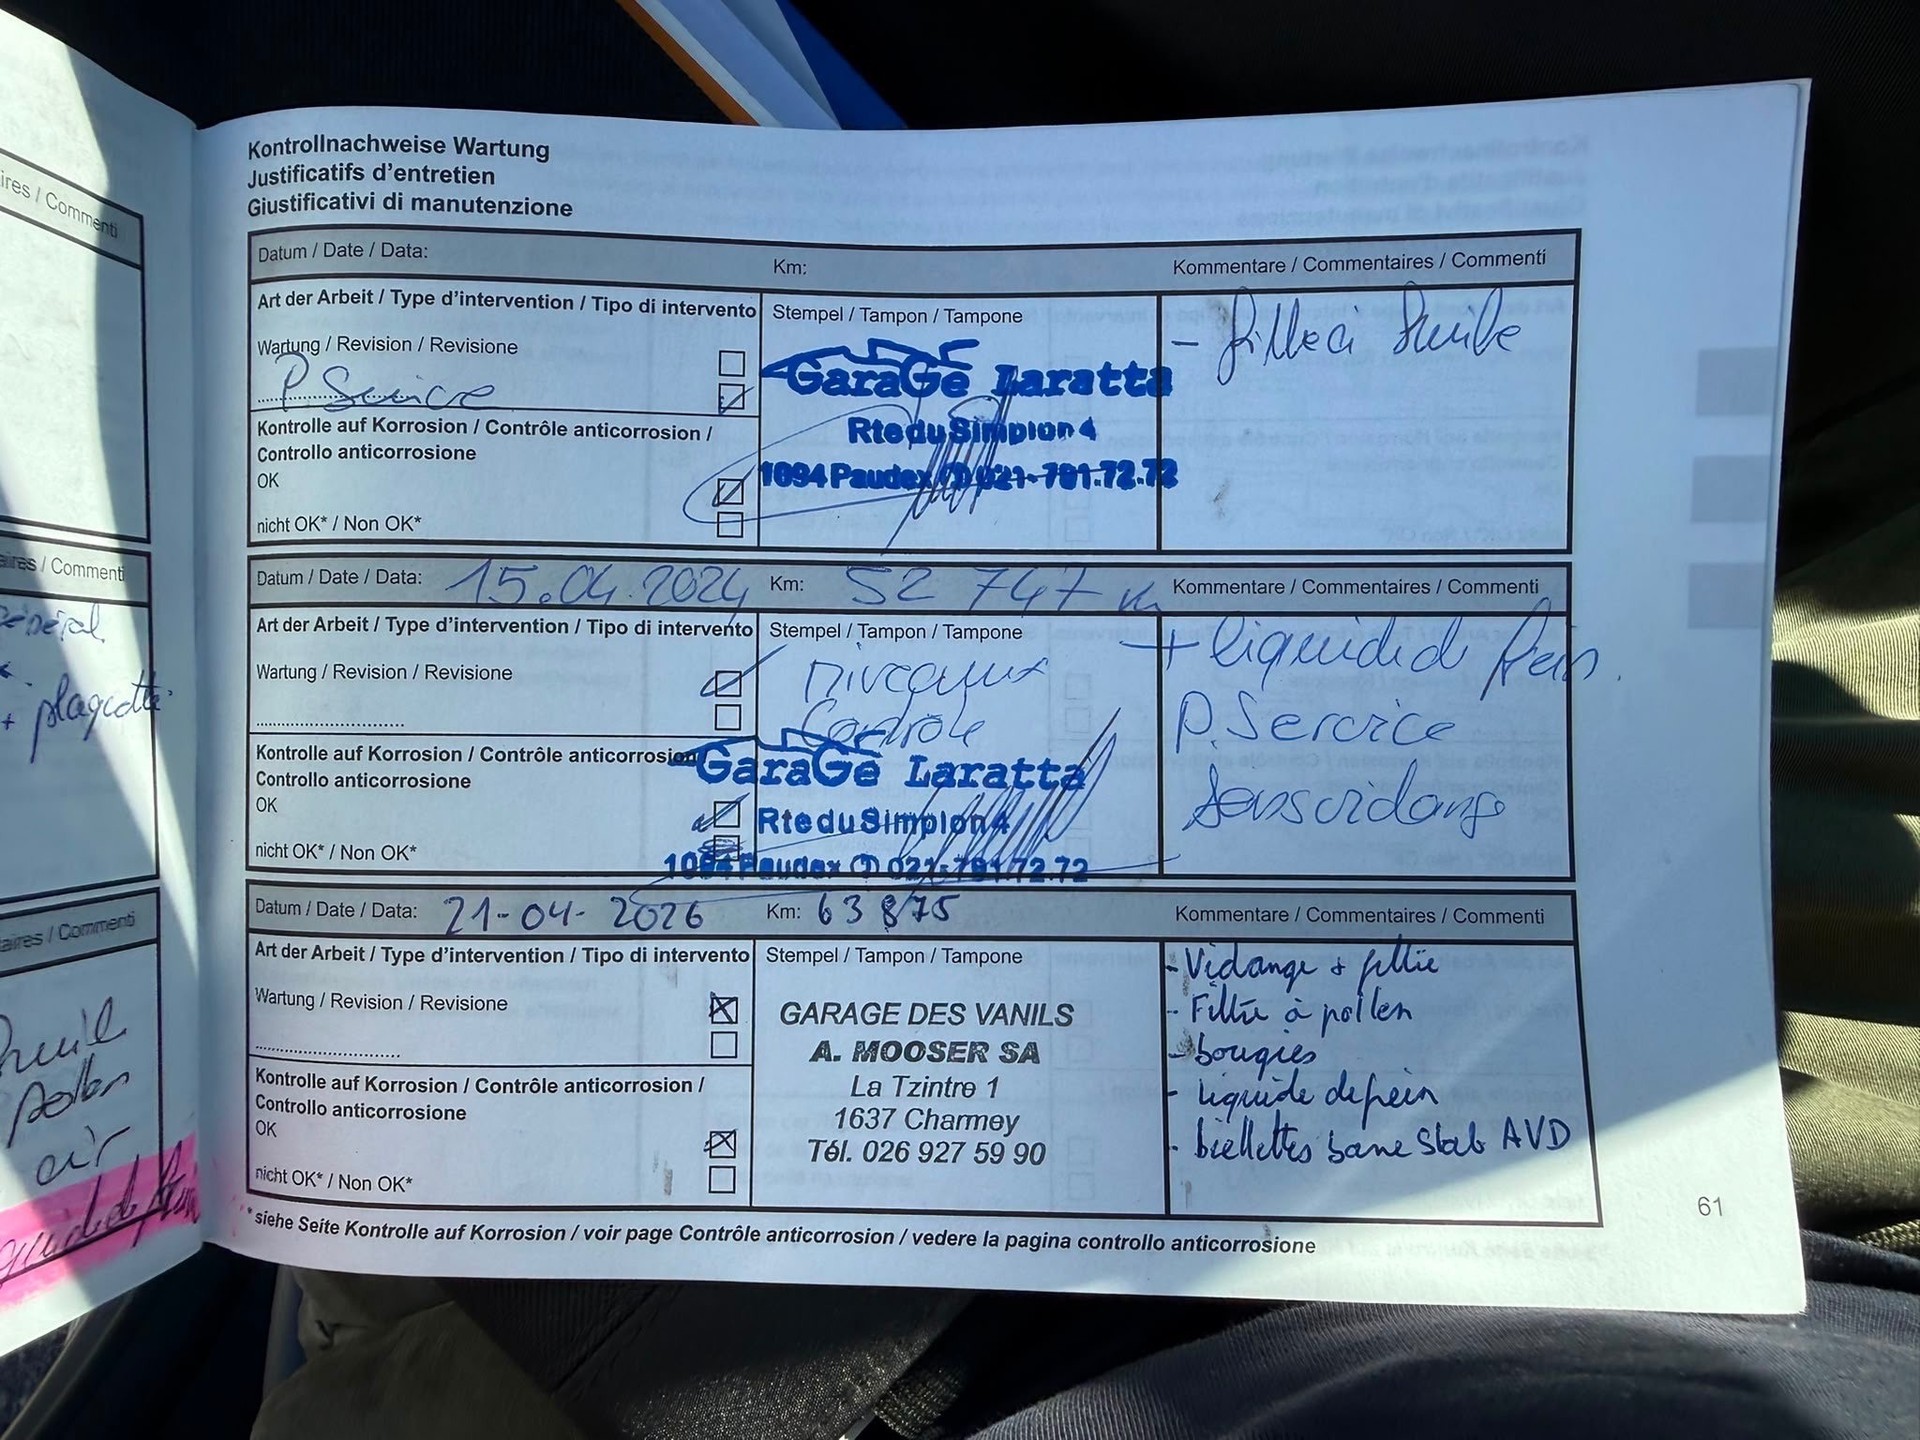 ires / Commenti
aires / Commenti
général
+ plaquette
aires / Commenti
huile
pollen
air
Kontrollnachweise Wartung
Justificatifs d'entretien
Giustificativi di manutenzione
Datum / Date / Data:
Km:
Kommentare / Commentaires / Commenti
Art der Arbeit / Type d'intervention / Tipo di intervento
Stempel / Tampon / Tampone
Wartung / Revision / Revisione
P Service
Kontrolle auf Korrosion / Contrôle anticorrosion /
Controllo anticorrosione
OK
nicht OK* / Non OK*
GaraGe Laratta
Rte du Simplon 4
1094 Paudex (T) 021-791.72.72
- filtre à huile
Datum / Date / Data: 15.04.2024
Km: 52 747 km
Kommentare / Commentaires / Commenti
Art der Arbeit / Type d'intervention / Tipo di intervento
Stempel / Tampon / Tampone
Wartung / Revision / Revisione
Kontrolle auf Korrosion / Contrôle anticorrosion
Controllo anticorrosione
OK
nicht OK* / Non OK*
niveaux
Contrôle
GaraGe Laratta
Rte du Simplon 4
1094 Paudex (T) 021-791.72.72
+ liquide d frein.
P. Service
sans vidange
Datum / Date / Data: 21-04-2026
Km: 63 875
Kommentare / Commentaires / Commenti
Art der Arbeit / Type d'intervention / Tipo di intervento
Stempel / Tampon / Tampone
Wartung / Revision / Revisione
Kontrolle auf Korrosion / Contrôle anticorrosion /
Controllo anticorrosione
OK
nicht OK* / Non OK*
GARAGE DES VANILS
A. MOOSER SA
La Tzintre 1
1637 Charmey
Tél. 026 927 59 90
- Vidange + filtre
- Filtre à pollen
- bougies
- liquide de frein
- biellettes barre stab AVD
*siehe Seite Kontrolle auf Korrosion / voir page Contrôle anticorrosion / vedere la pagina controllo anticorrosione
61